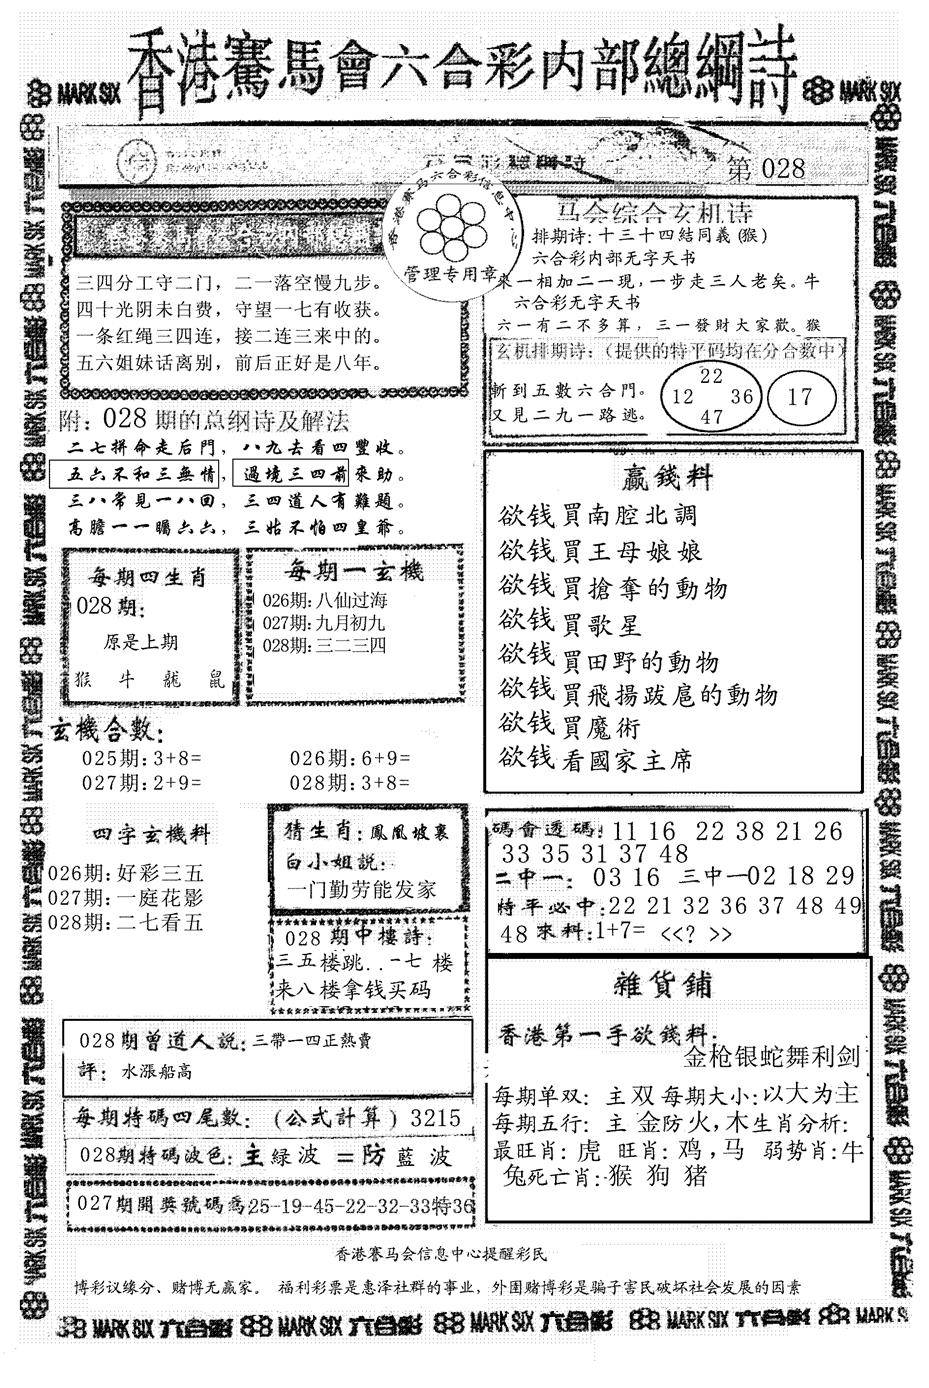 香港賽馬會六合彩内部總綱詩
MARK SIX
MARK SIX
第 028
香港赛马六合彩信息中心
管理专用章
三四分工守二门，二一落空慢九步。
四十光阴未白费，守望一七有收获。
一条红绳三四连，接二连三来中的。
五六姐妹话离别，前后正好是八年。
马会综合玄机诗
排期诗: 十三十四結同義 (猴)
六合彩内部无字天书
來一相加二一現，一步走三人老矣。牛
六合彩无字天书
六一有二不多算，三一發財大家歡。猴
玄机排期诗:（提供的特平码均在分合数中）
斬到五數六合門。
又見二九一路逃。
22
12 36
47
17
附: 028 期的总纲诗及解法
二七拼命走后門，八九去看四豐收。
五六不和三無情，過境三四前來助。
三八常見一八回，三四道人有難題。
高膽一一矚六六，三姑不怕四皇爺。
每期四生肖
028 期:
原是上期
猴 牛 龍 鼠
每期一玄機
026期: 八仙过海
027期: 九月初九
028期: 三二三四
玄機合數:
025期: 3+8= 026期: 6+9=
027期: 2+9= 028期: 3+8=
贏錢料
欲钱買南腔北調
欲钱買王母娘娘
欲钱買搶奪的動物
欲钱買歌星
欲钱買田野的動物
欲钱買飛揚跋扈的動物
欲钱買魔術
欲钱看國家主席
四字玄機料
026期: 好彩三五
027期: 一庭花影
028期: 二七看五
猜生肖: 鳳凰坡裏
白小姐説:
一门勤劳能发家
028 期中樓詩:
三五楼跳. . 一七 楼
来八楼拿钱买码
碼會透碼: 11 16 22 38 21 26
33 35 31 37 48
二中一: 03 16 三中一02 18 29
特平必中: 22 21 32 36 37 48 49
48 來料: 1+7= <<? >>
028期曾道人説: 三帶一四正熱賣
評: 水漲船高
每期特碼四尾數: (公式計算) 3215
028期特碼波色: 主 綠波 = 防 藍 波
027期開獎號碼爲: 25-19-45-22-32-33特36
雜貨鋪
香港第一手欲錢料:
金枪银蛇舞利剑
每期单双: 主 双 每期大小: 以大为主
每期五行: 主 金防火,木生肖分析:
最旺肖: 虎 旺肖: 鸡,马 弱势肖: 牛
兔死亡肖: 猴 狗 猪
香港賽马会信息中心提醒彩民
博彩议缘分、赌博无赢家。 福利彩票是惠泽社群的事业，外围赌博彩是骗子害民破坏社会发展的因素
MARK SIX 六合彩 MARK SIX 六合彩 MARK SIX 六合彩 MARK SIX 六合彩 MARK SIX